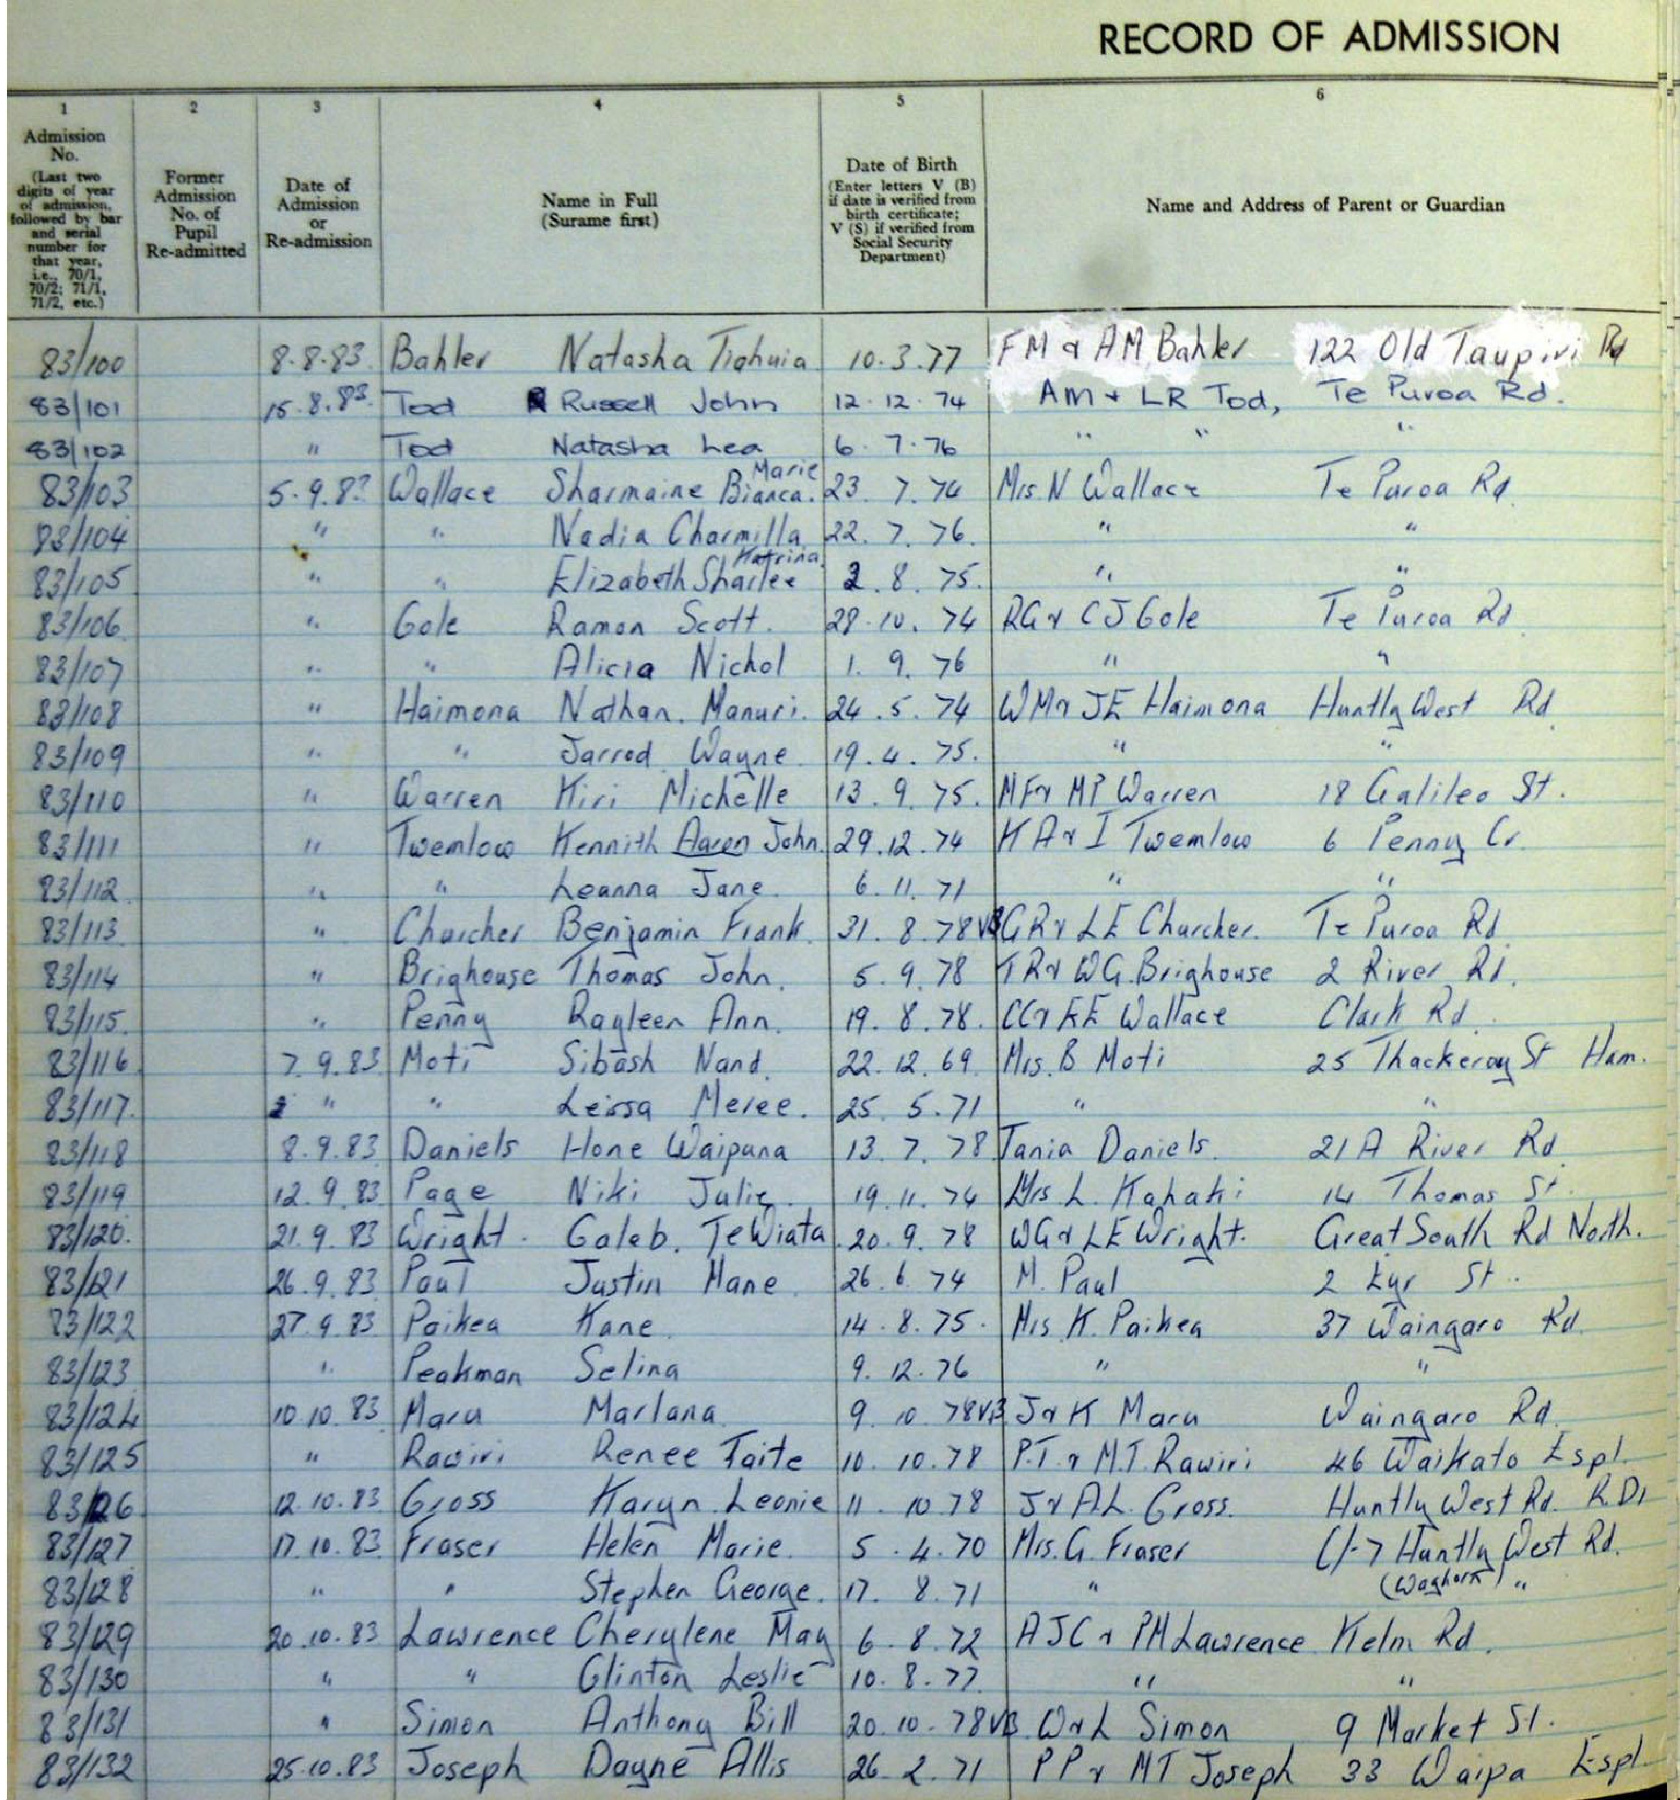 RECORD OF ADMISSION
1 2 3 4 5 6
Admission No. (Last two digits of year of admission, followed by bar and serial number for that year, i.e., 70/1, 70/2; 71/1, 71/2, etc.)
Former Admission No. of Pupil Re-admitted
Date of Admission or Re-admission
Name in Full (Surame first)
Date of Birth (Enter letters V (B) if date is verified from birth certificate; V (S) if verified from Social Security Department)
Name and Address of Parent or Guardian
83/100 8.8.83 Bahler Natasha Tiahuia 10.3.77 FM & AM Bahler 122 Old Taupiri Rd
83/101 15.8.83 Tod Russell John 12.12.74 AM & LR Tod, Te Puroa Rd.
83/102 " Tod Natasha Lea 6.7.76 " " "
83/103 5.9.83 Wallace Sharmaine Bianca Marie 23.7.74 Mrs N Wallace Te Puroa Rd
83/104 " " Nadia Charmilla 22.7.76. " "
83/105 " " Elizabeth Sharlee Katrina 2.8.75. " "
83/106 " Gole Ramon Scott. 28.10.74 RG & CJ Gole Te Puroa Rd
83/107 " " Alicia Nichol 1.9.76 " "
83/108 " Haimona Nathan Manuri. 24.5.74 WM & JE Haimona Huntly West Rd
83/109 " " Jarrod Wayne 19.4.75. " "
83/110 " Warren Kiri Michelle 13.9.75. MF & MP Warren 18 Galileo St.
83/111 " Twemlow Kennith Aaron John 29.12.74 KA & I Twemlow 6 Penny Cr.
83/112 " " Leanna Jane 6.11.71 " "
83/113 " Churcher Benjamin Frank. 31.8.78 VB GR & LE Churcher. Te Puroa Rd
83/114 " Brighouse Thomas John. 5.9.78 TR & WG Brighouse 2 River Rd.
83/115. " Penny Rayleen Ann. 19.8.78. CC & EE Wallace Clark Rd.
83/116 7.9.83 Moti Sibash Nand. 22.12.69. Mrs. B Moti 25 Thackeray St Ham.
83/117. " " Leissa Meree. 25.5.71 " "
83/118 8.9.83 Daniels Hone Waipuna 13.7.78 Tania Daniels. 21A River Rd
83/119 12.9.83 Page Niki Julie. 19.11.74 Mrs. L. Kahaki 14 Thomas St.
83/120. 21.9.83 Wright. Caleb. Te Wiata. 20.9.78 WG & LE Wright. Great South Rd North.
83/121 26.9.83 Paul Justin Mane 26.6.74 M. Paul 2 Eyr St.
83/122 27.9.83 Paikea Kane 14.8.75. Mrs K. Paikea 37 Waingaro Rd
83/123 " Peakman Selina 9.12.76 " "
83/124 10.10.83 Maru Marlana 9.10.78 VB J & K Maru Waingaro Rd
83/125 " Rawiri Renee Taite 10.10.78 P.T. & M.T. Rawiri 46 Waikato Espl.
83/126 12.10.83 Cross Karyn Leonie 11.10.78 J & A.L. Cross. Huntly West Rd. R.D1
83/127 17.10.83 Fraser Helen Marie 5.4.70 Mrs. G. Fraser C/-7 Huntly West Rd.
83/128 " " Stephen George. 17.8.71 " (Waghorn) "
83/129 20.10.83 Lawrence Cherylene May 6.8.72 AJC & PM Lawrence Kelm Rd.
83/130 " " Clinton Leslie 10.8.77. " "
83/131 " Simon Anthony Bill 20.10.78 VB. W & L Simon 9 Market St.
83/132 25.10.83 Joseph Dayne Allis 26.2.71 PP & MT Joseph 33 Waipa Espl